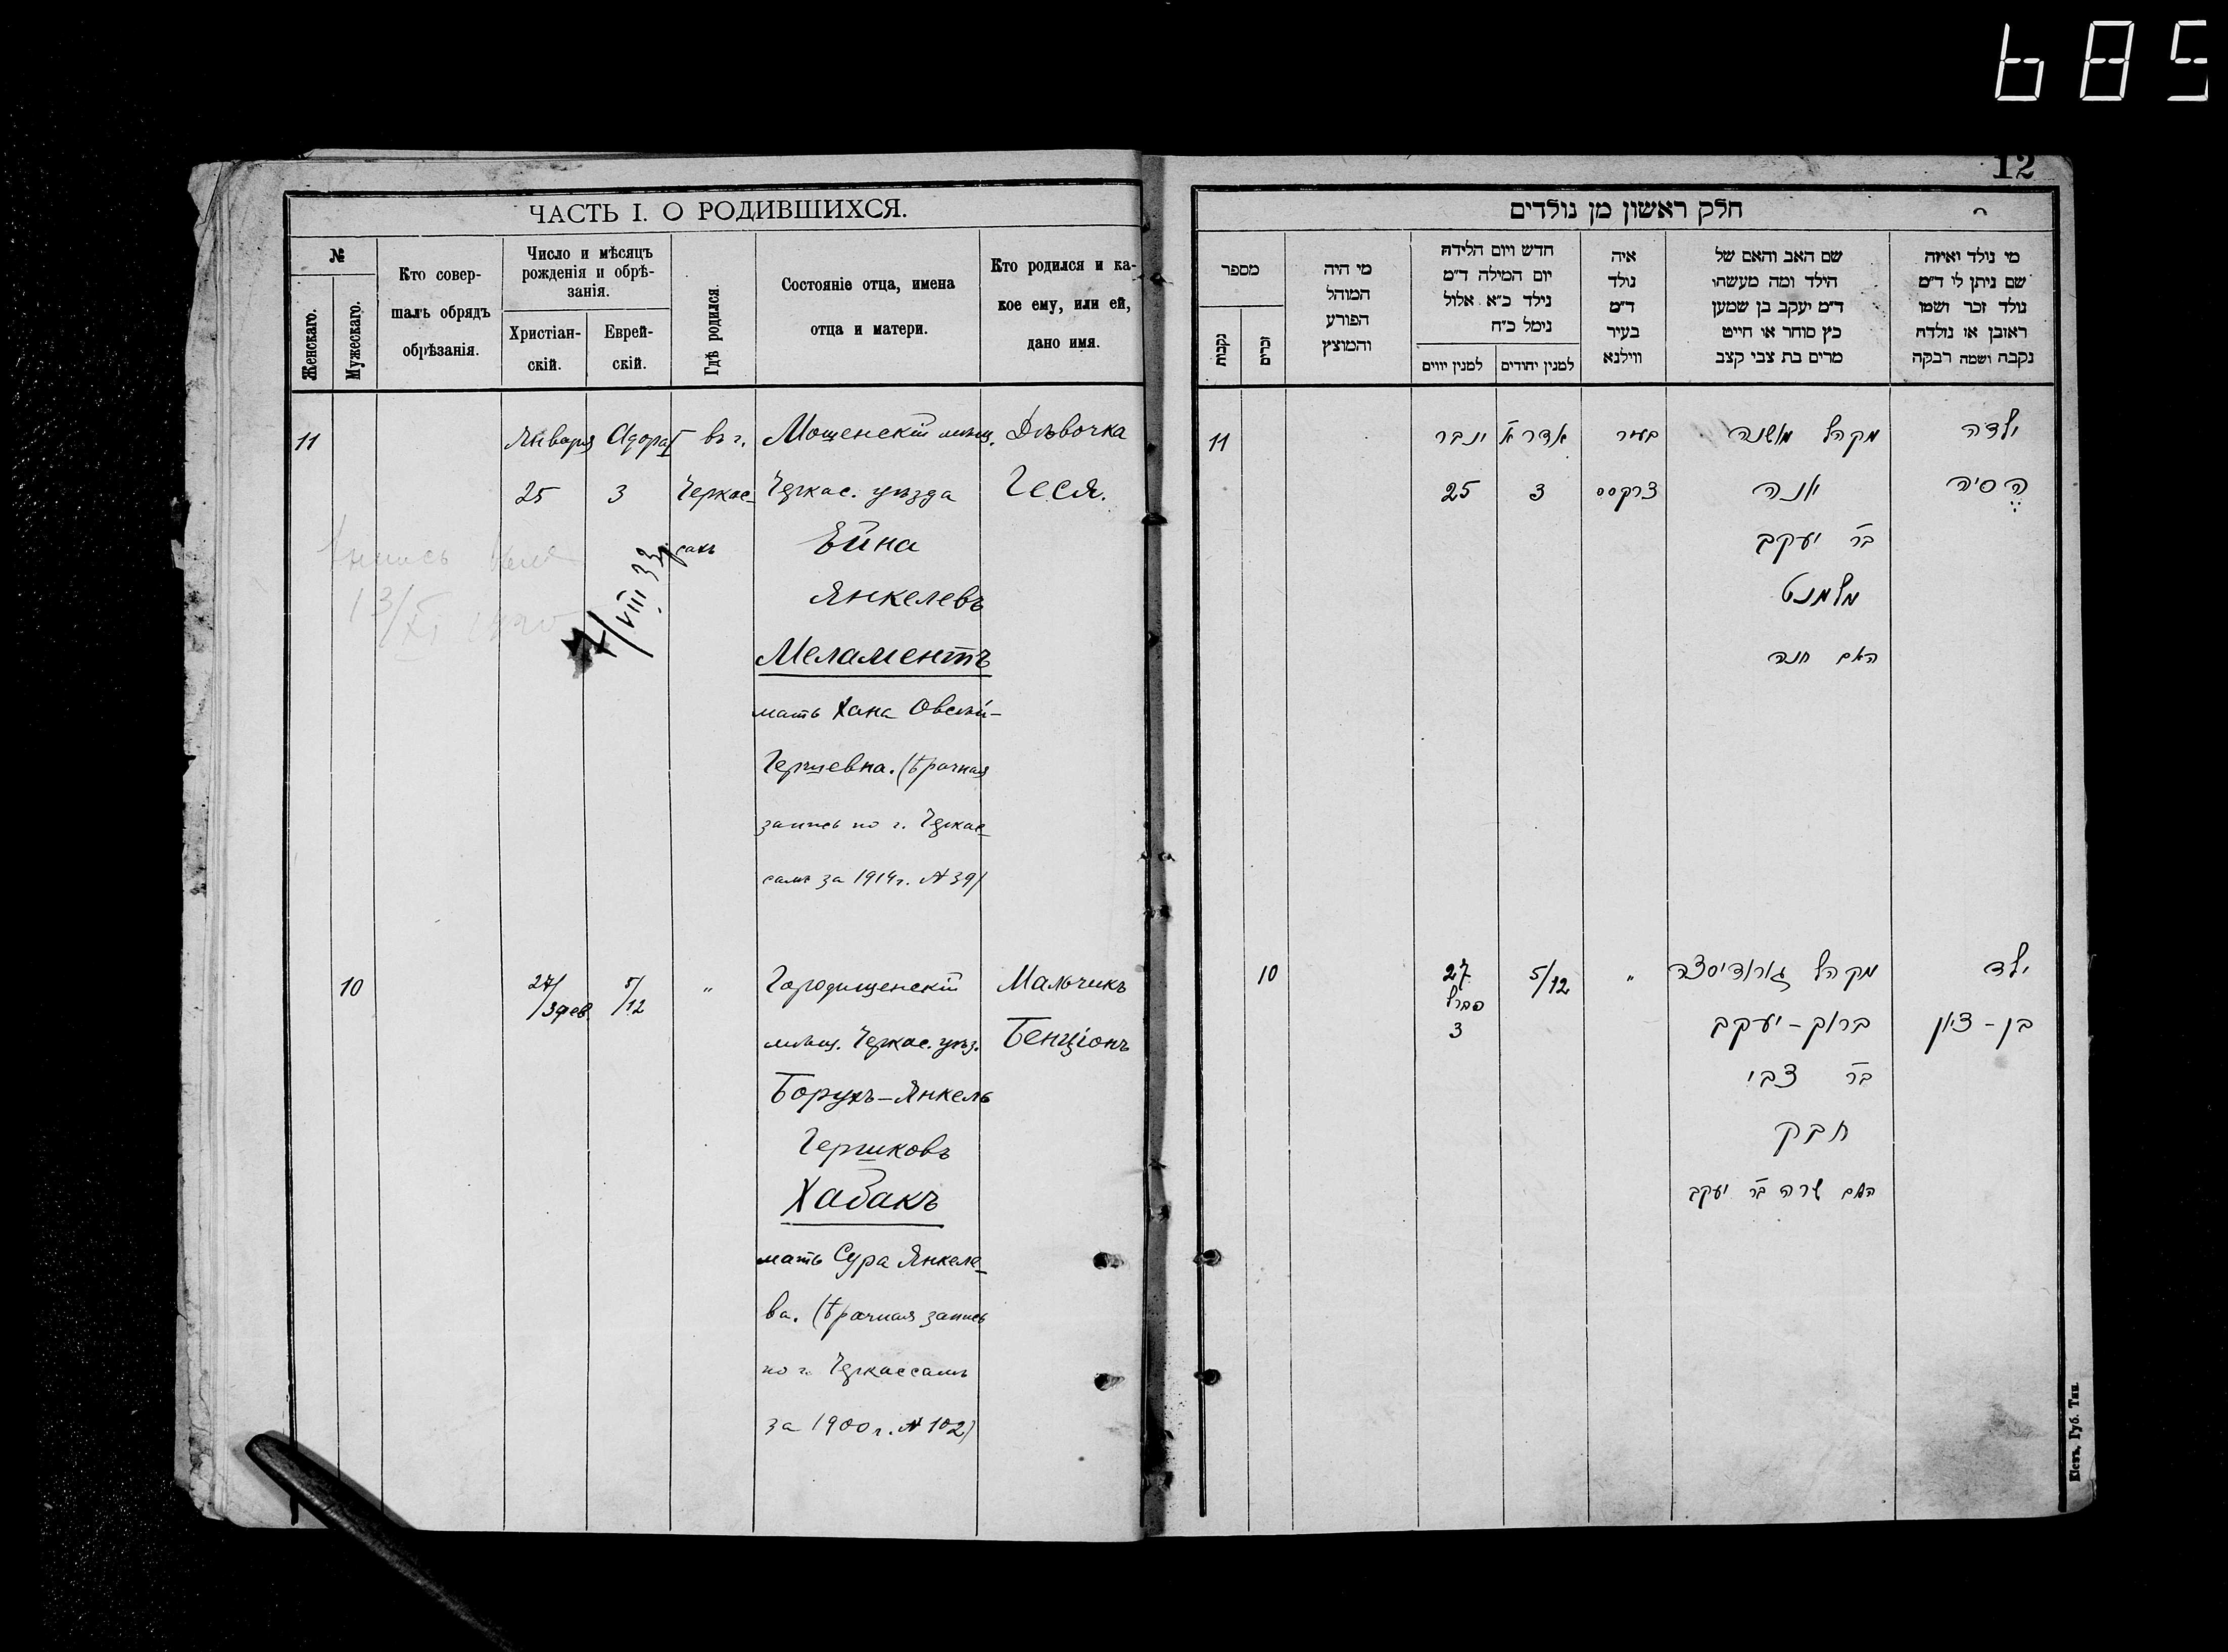 685
ЧАСТЬ I. О РОДИВШИХСЯ.
№
Женскаго.
Мужескаго.
Кто совер-
шалъ обрядъ
обрѣзанія.
Число и мѣсяцъ
рожденія и обрѣ-
занія.
Христіан-
скій.
Еврей-
скій.
Гдѣ родился.
Состояніе отца, имена
отца и матери.
Кто родился и ка-
кое ему, или ей,
дано имя.
11
Января
25
Адора I
3
въ г.
Черкас-
сахъ
Мошенскій мѣщ.
Черкас. уѣзда
Ейна
Янкелевъ
Меламентъ
мать Хана Овсѣй-
Гершевна. (брачная
запись по г. Черкас-
самъ за 1914 г. № 39)
Дѣвочка
Геся.
VIII 33
13/XI
10
27/
/3 фев.
5/
/12
"
Городищенскій
мѣщ. Черкас. уѣз.
Борухъ-Янкель
Гершковъ
Хабакъ
мать Сура Янкеле-
ва. (брачная запись
по г. Черкассамъ
за 1900 г. № 102)
Мальчикъ
Бенціонъ
12
חלק ראשון מן נולדים
מספר
נקבות
זכרים
מי היה
המוהל
הפורע
והמוצץ
חדש ויום הלידה
יום המילה ד״מ
נילד כ״א אלול
נימל כ״ח
למנין יווים
למנין יהודים
איה
נולד
ד״מ
בעיר
ווילנא
שם האב והאם של
הילד ומה מעשהו
ד״מ יעקב בן שמען
כץ סוחר או חייט
מרים בת צבי קצב
מי נולד ואיזה
שם ניתן לו ד״מ
נולד זכר ושמו
ראובן או נולדה
נקבה ושמה רבקה
11
ינבר
25
אדר א
3
בעיר
צרקסס
מקהל מאשנה
יונה
בר יעקב
מלמנט
האם חנה
ילדה
הסיה
10
27
פברל
3
5/12
"
מקהל גוראדיסצה
ברוך-יעקב
בר צבי
חבק
האם שרה בר יעקב
ילד
בן-ציון
Кіевъ, Губ. Тип.